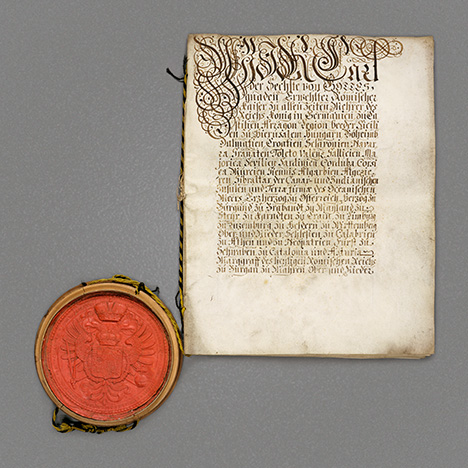 Wir Carl
der Sechste von Gottes
gnaden Erwehlter Römischer
Kaiser zu allen Zeiten Mehrer des
Reichs König in Germanien zu Ca
stilien Arragon Legion beeder Sicili
en zu Hierusalem Hungarn Böheimb
Dalmatien Croatien Sclavonien Navar
ra Granaten Toleto Valenz Gallicien Ma
jorica Sevilien Sardinien Corduba Corsi
ca Murcien Algarbien Algezie
ren Gibraltar der Canari und Indianischen
Insulen und Terrae firmae des Oceanischen
Meers Erzherzog zu Österreich Herzog zu
Burgund zu Braband zu Mayland zu
Steyr zu Cärnden zu Crain zu Limburg
zu Luzenburg zu Geldern zu Württemberg
Ober und Nieder Schlesien zu Calabrien
zu Athen und zu Neopatrien Fürst zu
Schwaben zu Catalonia und Asturia
Marggraf des heyligen Römischen Reichs
zu Burgau zu Mähren Ober und Nieder